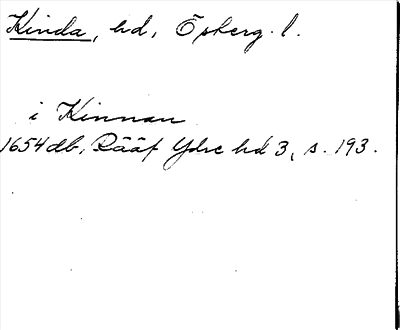 Kinda, hd, Ö berg. l.
i Kinnan
1654 db, Rääf Ydre hd 3, s. 193.